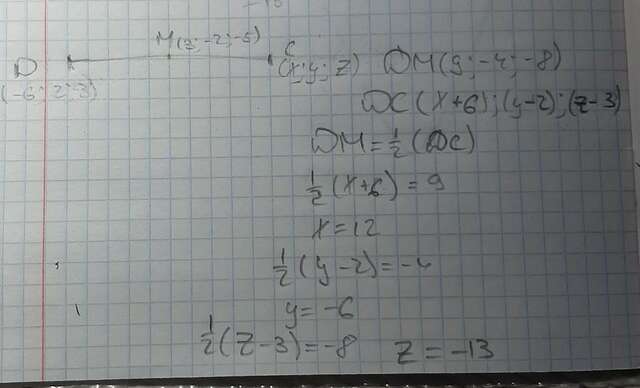 M(3;-2;-5)
D C
(-6;2;3) (x;y;z) DM(9;-4;-8)
DC(x+6);(y-2);(z-3)
DM=½(DC)
½(x+6)=9
x=12
½(y-2)=-4
y=-6
½(z-3)=-8 z=-13